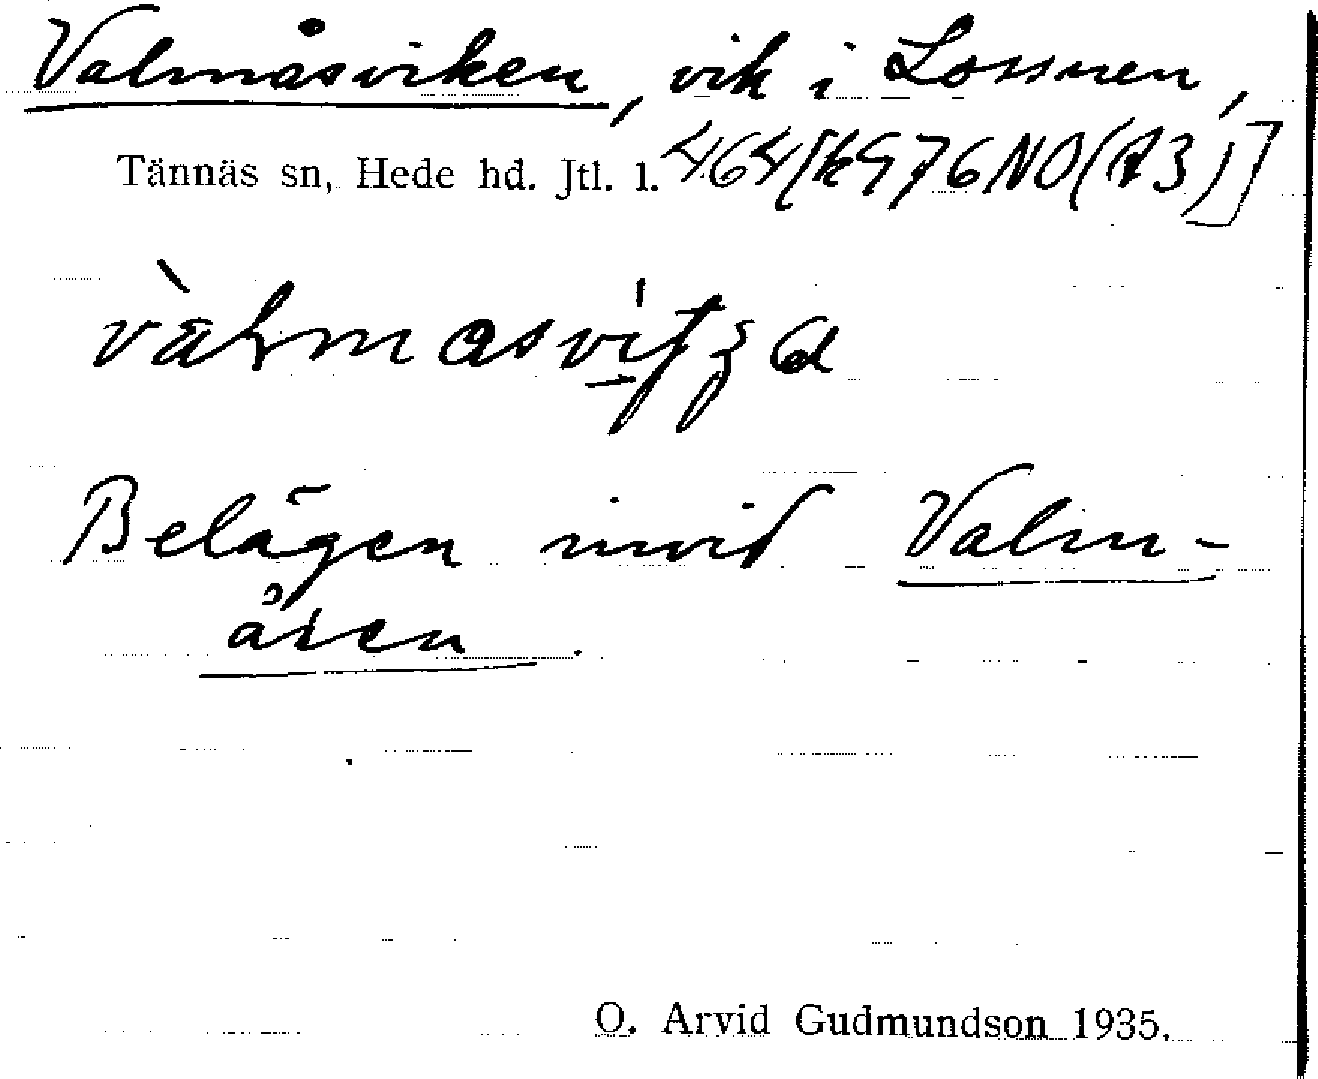 Valmåsviken, vik i Lossnen,
Tännäs sn, Hede hd. Jtl. l. 464[k976NO(A3)]
Belägen invid Valm-
åsen.
O. Arvid Gudmundson 1935.